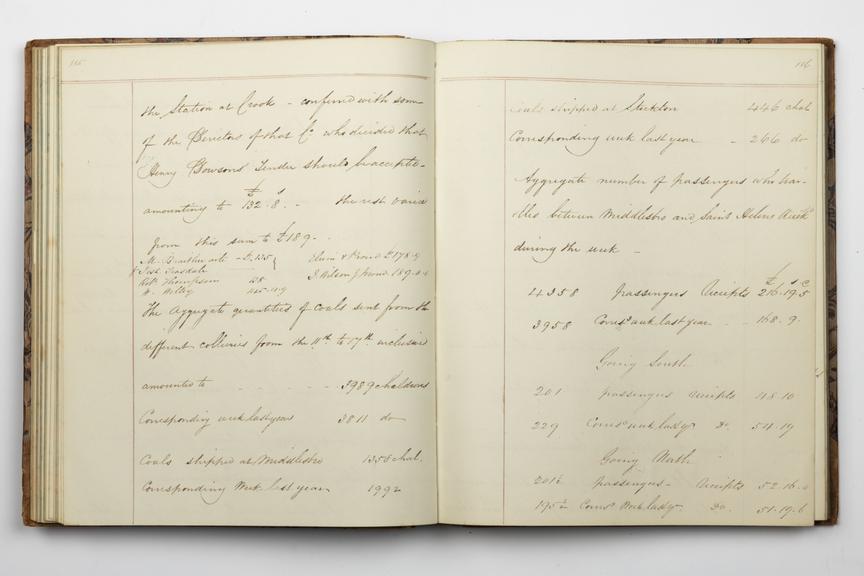 115
the Station at Crook - conferred with some
of the Directors of that Co. who decided that
Henry Bowsons Tender should be accepted -
£ s
amounting to 132. 8. - the rest varied
from this sum to £189 -
& Joss. Teasdale
Robt Thompson 158
W. Willey 145.10.9
J. Wilson
The Aggregate quantities of Coals sent from the
different collieries from the 11th to 17th inclusive
amounted to - - - - 3989 chaldrons
Corresponding week last year 3811 do
Coals shipped at Middlesbro 1358 chal.
Corresponding Week last year 1992
116
Coals shipped at Stockton 446 chal
Corresponding week last year - 266 do
Aggregate number of passengers who tra-
velled between Middlesbro and Saint Helens Auckd
during the week -
£ s d
4358 passengers Receipts 216.19.5
3958 Corresg week last year - - 168. 9.
Going South
201 passengers receipts 48.10
229 Corresg week last yr Do. 54.19
Going North
201½ passengers - Receipts 52.16.
195½ Corresg Week last yr. Do. 51.19.6